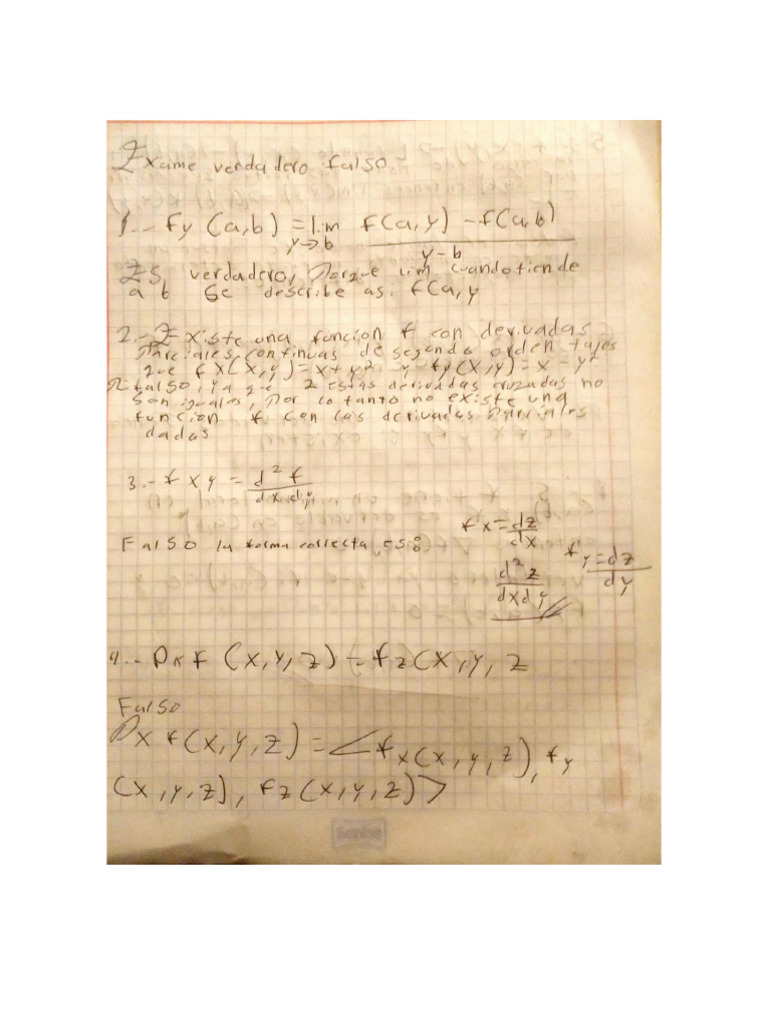 Exame verdadero falso
1.- Fy (a,b) = lim f(a,y) - f(a,b)
y→b y-b
Es verdadero, Porque lim cuando tiende
a b se describe asi f(a,y
2.- Existe una funcion f con derivadas
Parciales continuas de segundo orden tales
que f x(x,y) = x + y² y fy(x,y) = x - y²
falso, ya que 2 estas derivadas cruzadas no
son iguales, Por lo tanto no existe una
funcion f. con las derivadas Parciales
dadas
3.- f x y = d² f
dx dy
Falso la forma correcta es:
f x = dz
dx
f y = dz
dy
d² z
dx dy
4.- Dk f (x,y,z) = fz(x,y,z
Falso
Dx f(x,y,z) = <fx(x,y,z), fy
(x,y,z), fz(x,y,z)>
Scribe